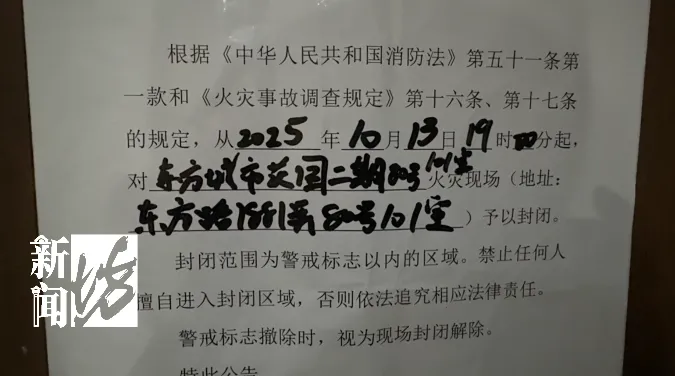 根据《中华人民共和国消防法》第五十一条第
一款和《火灾事故调查规定》第十六条、第十七条
的规定，从2025年10月13日19时 分起，
对东方城市花园二期80号101室火灾现场（地址：
东方路1881弄80号101室）予以封闭。
封闭范围为警戒标志以内的区域。禁止任何人
擅自进入封闭区域，否则依法追究相应法律责任。
警戒标志撤除时，视为现场封闭解除。
特此公告
新闻坊